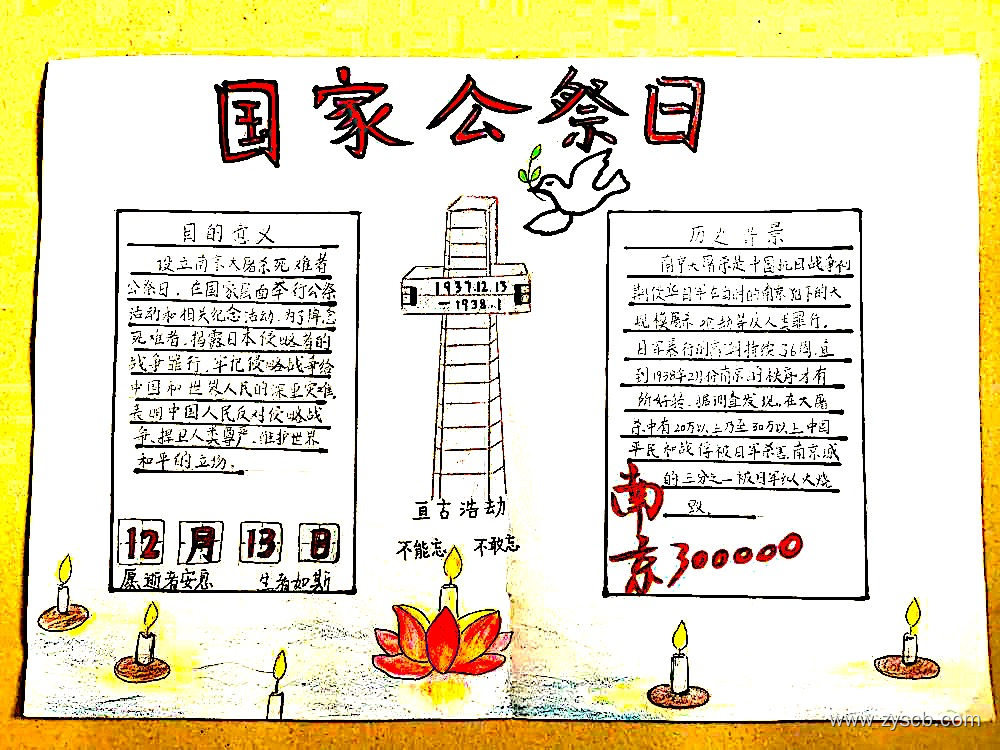 国家公祭日
目的意义
设立南京大屠杀死难者
公祭日，在国家层面举行公祭
活动和相关纪念活动，为了悼念
死难者，揭露日本侵略者的
战争罪行，牢记侵略战争给
中国和世界人民的深重灾难，
表明中国人民反对侵略战
争、捍卫人类尊严、维护世界
和平的立场。
12月13日
愿逝者安息
生者如斯
1937.12.13
—1938.1
亘古浩劫
不能忘 不敢忘
历史背景
南京大屠杀是中国抗日战争初
期侵华日军在当时的南京犯下的大
规模屠杀
日军暴行的高潮持续了6周，直
到1938年2月份南京的秩序才有
所好转，据调查发现，在大屠
杀中有20万以上乃至30万以上中国
平民和战俘被日军杀害，南京城
的三分之一被日军纵火烧
毁。
南
京300000
www.zyscb.com